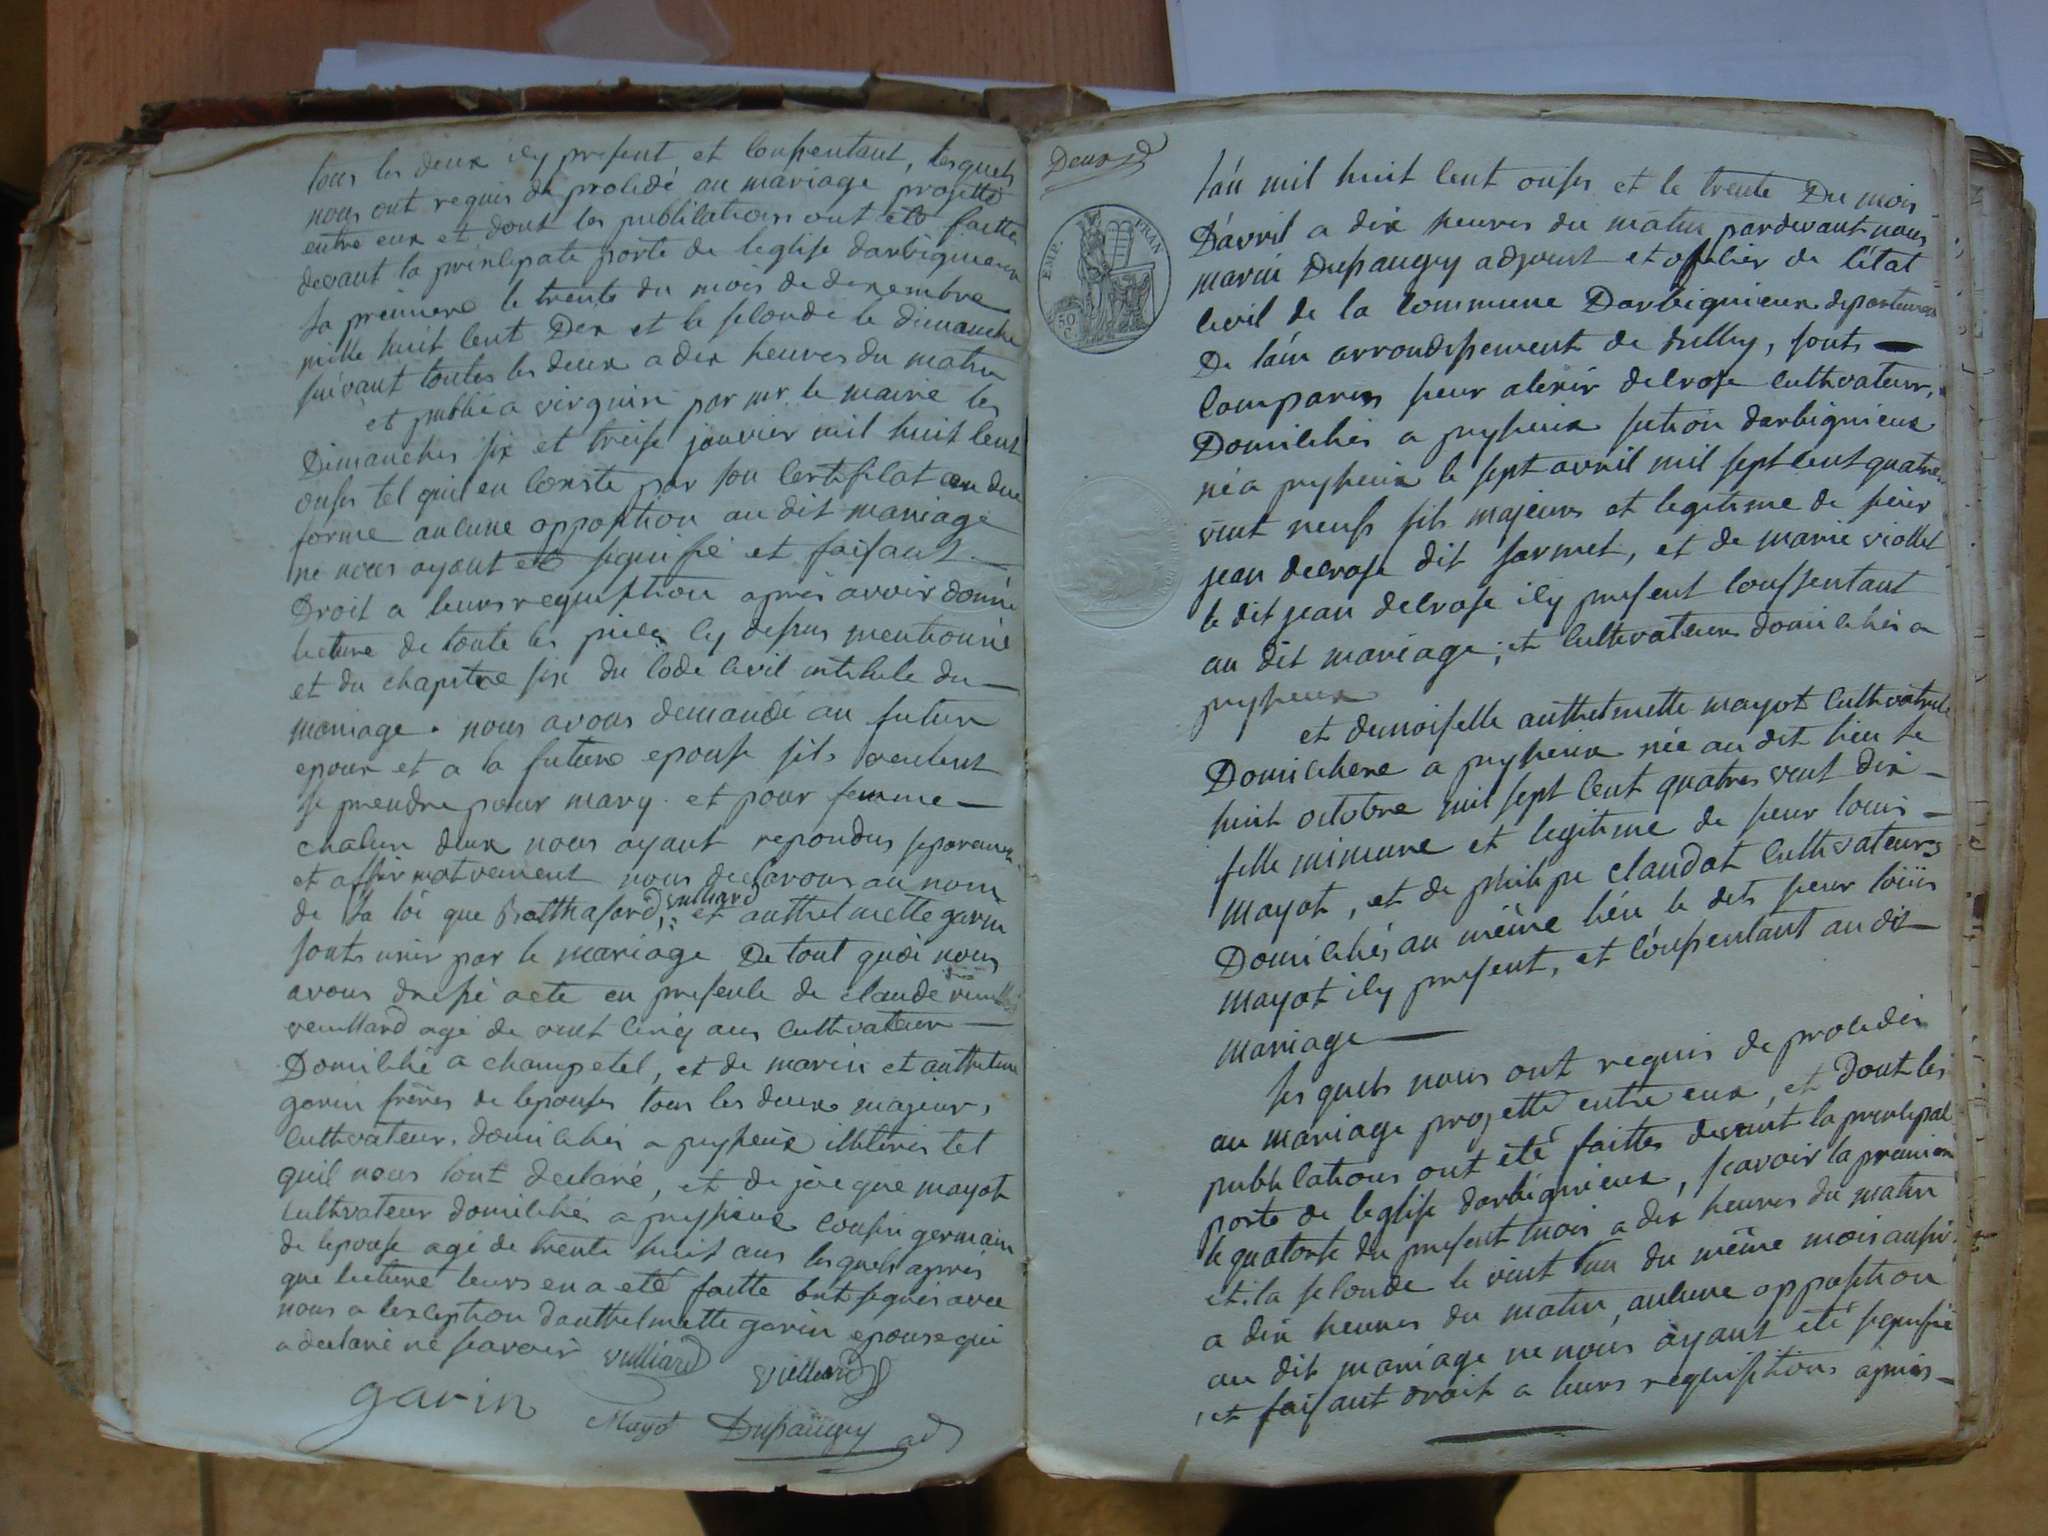 tous les deux icy present et consentant, lesquels
nous ont requis de procedé au mariage projetté
entre eux et dont les publications ont eté faitte
devant la principale porte de leglise darbignieux
la premiere le trente du mois de decembre
mille huit cent Dix et la seconde le dimanche
suivant toutes les deux a dix heures du matin
et publié a virignin par mr le maire les
Dimanches six et treise janvier mil huit cent
onse tel quil en conste par son certificat en due
forme aucune opposition au dit mariage
ne nous ayant eté signifié et faisant
Droit a leurs requisition apres avoir donné
lecture de toute les pieces cy dessus mentionné
et du chapitre six du Code Civil intitule du
mariage. nous avons demandé au futur
epoux et a la future epouse sils veulent
se prendre pour mary et pour femme
chacun deux nous ayant repondus separement
et affirmativement nous declarons au nom
de la loi que Balthasard vulliard et anthelmette garin
sont unis par le mariage De tout quoi nous
avons dressé acte en presence de claude
veuillard agé de vint cinq ans cultivateur
Domicilié a champetel, et de marin et anthelme
garin frères de lepouse tous les deux majeurs
cultivateurs domiciliés a peyzieux illiteres tel
quil nous lont declaré, et de jacque mayot
cultivateur domicilié a peyzieux cousin germain
de lepouse agé de trente huit ans lesquels apres
que lecture leurs en a eté faitte ont signés avec
nous a lexception danthelmette garin epouse qui
a declaré ne scavoir vulliard vulliard
garin Mayot Dupaugey adj
Deux
EMP. FRAN
50 C.
lan mil huit cent onse et le trente Du mois
D'avril a dix heures du matin pardevant nous
marin Dupaugey adjoint et officier de l'état
Civil de la Commune Darbignieux departement
De lain arrondissement de Belley, sont
comparus sieur alexis delrose cultivateur,
Domiciliés a peyzieux section darbignieux
né a peyzieux le sept avril mil sept cent quatre
vint neuf fils majeurs et legitime de sieur
jean decrose dit sarmet, et de marie viollet
le dit jean decrose icy present consentant
au dit mariage; et cultivateurs domiciliés a
peyzieux
et demoiselle anthelmette mayot cultivatrice
Domiciliere a peyzieux née au dit lieu le
huit octobre mil sept cent quatres vint dix
fille mineure et legitime de sieur louis
mayot, et de philipe claudot cultivateurs
Domiciliés au même lieu le dit sieur louis
mayot icy present, et consentant au dit
mariage
lesquels nous ont requis de proceder
au mariage projetté entre eux, et dont les
publications ont été faittes devant la principal
porte de leglise darbignieux, scavoir la premiere
le quatorse du present mois a dix heures du matin
et la seconde le vint un du même mois aussi
a dix heures du matin, aucune opposition
au dit mariage ne nous ayant eté signifié
et faisant droit a leurs requisitions apres